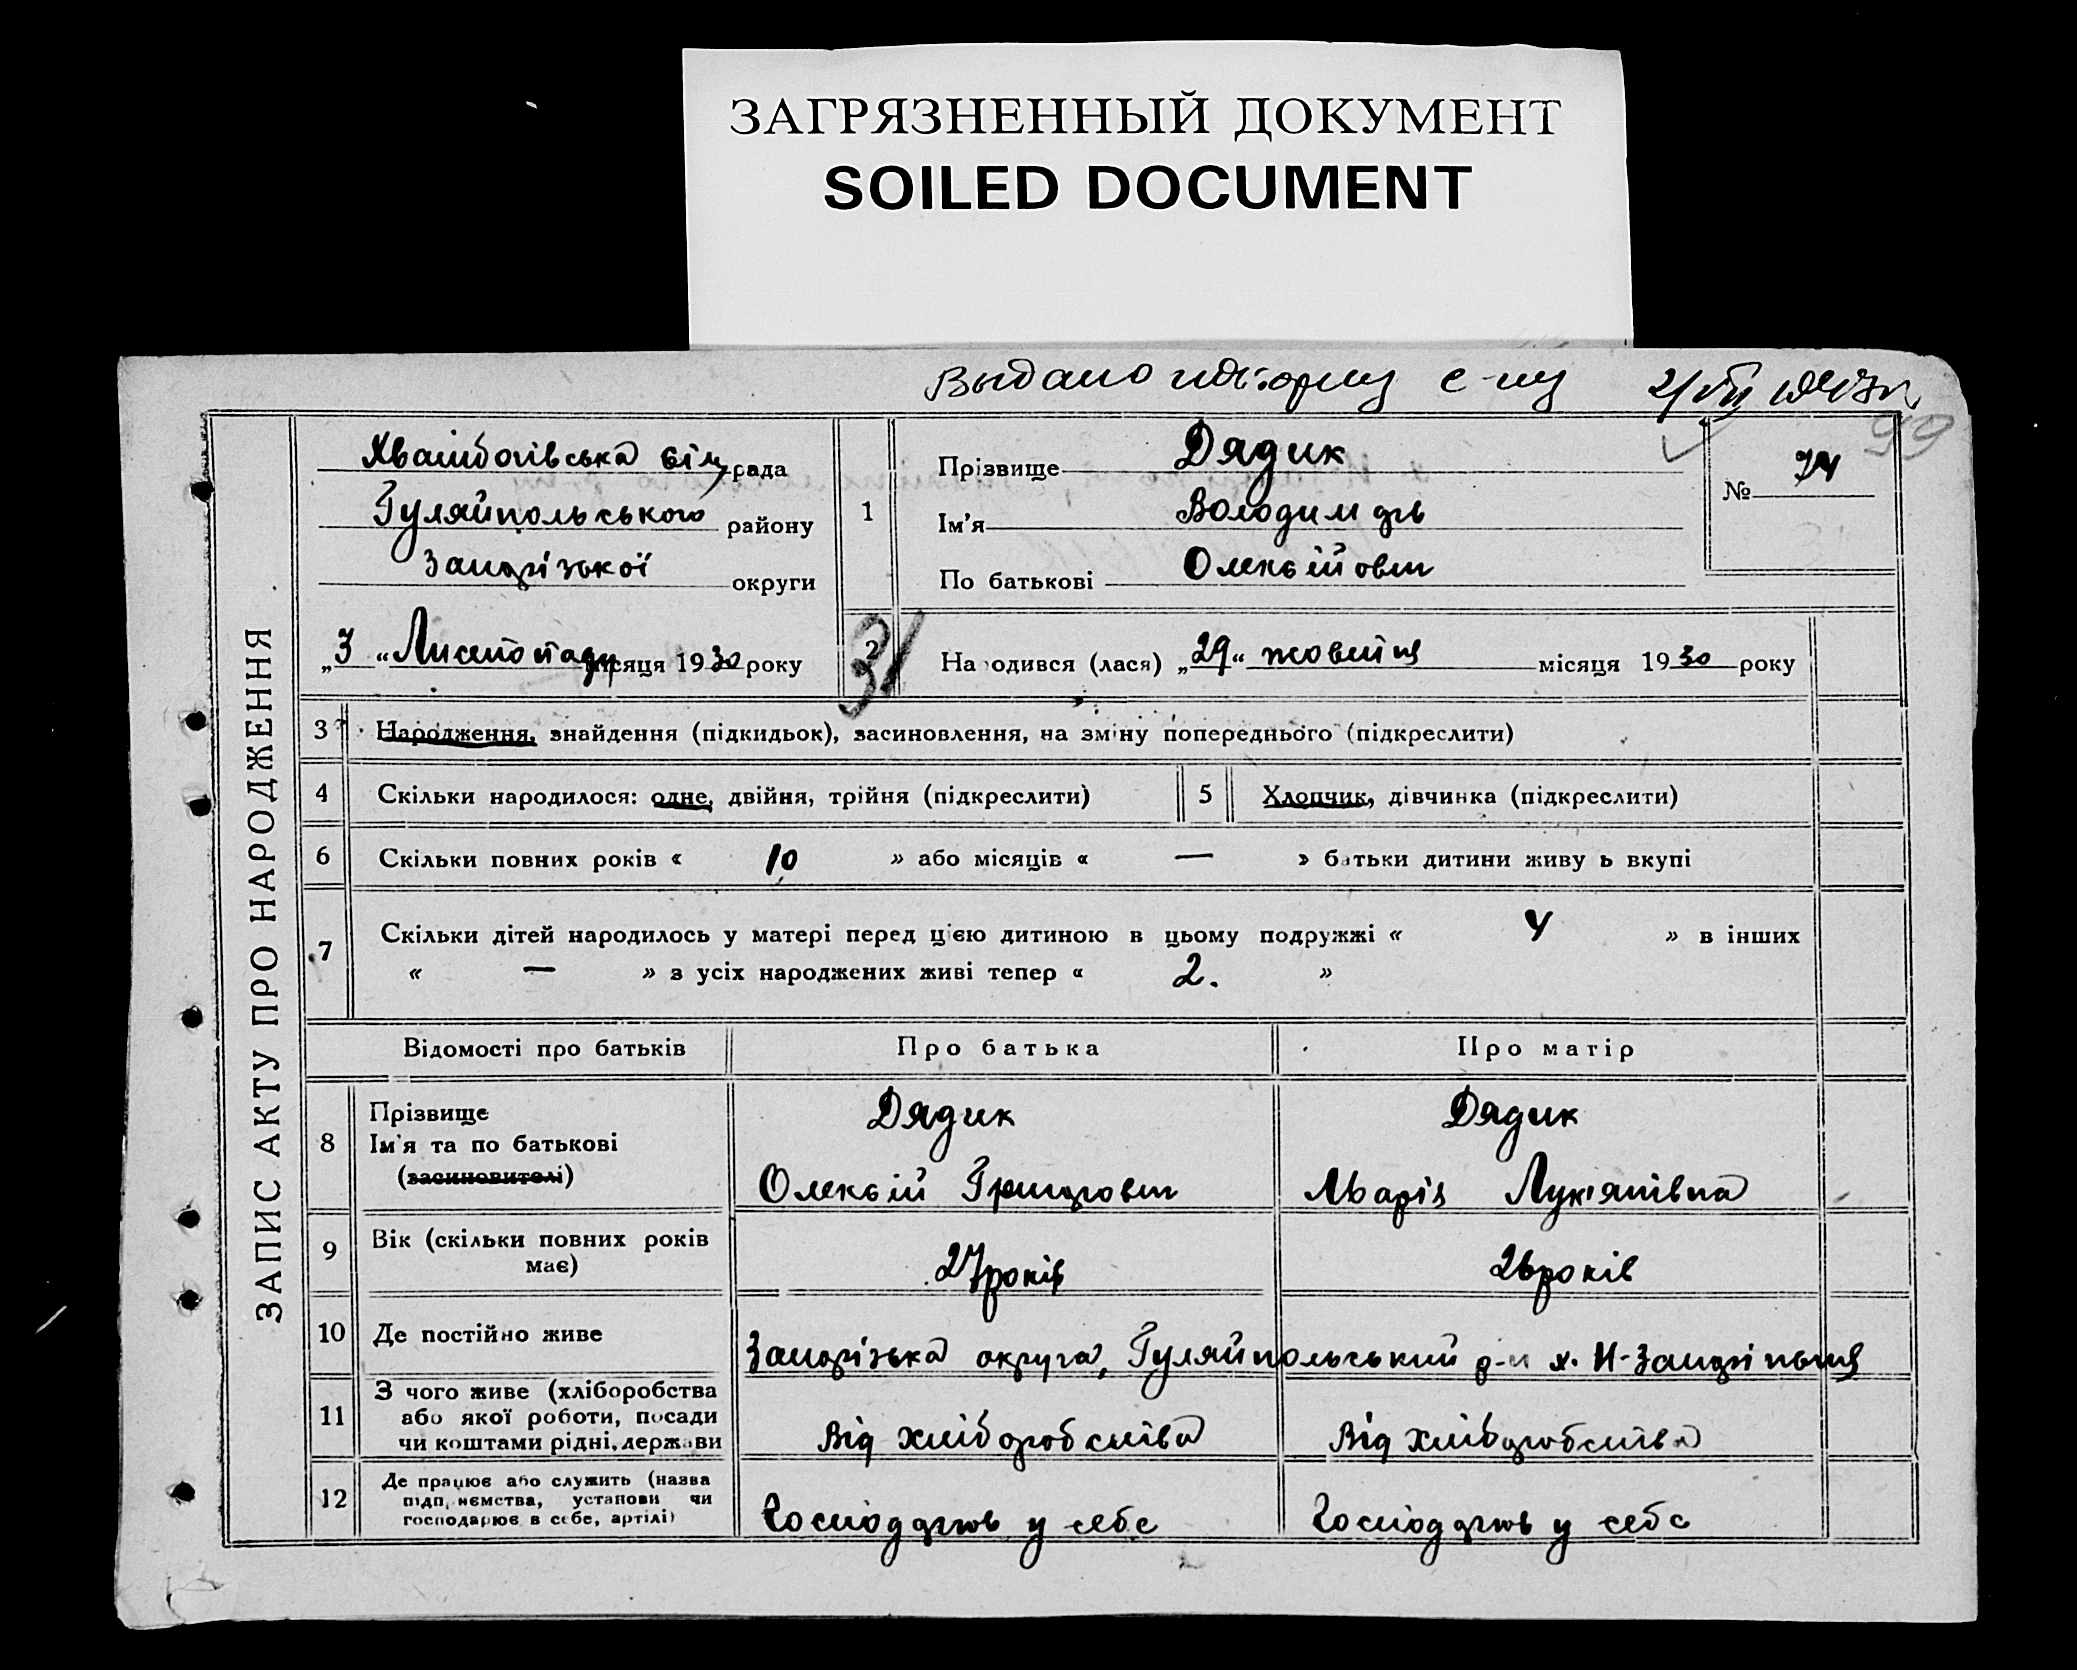 ЗАГРЯЗНЕННЫЙ ДОКУМЕНТ
SOILED DOCUMENT
Выдано с-му 2/VII
99
ЗАПИС АКТУ ПРО НАРОДЖЕННЯ
рада
Гуляйпольського району
Запорізької округи
„3“ Листопада місяця 1930 року
1
Прізвище Дядик
Ім'я Володимир
По батькові Олексійович
№ 74
31
2 Народився (лася) „29“ жовтня місяця 1930 року
3 Народження, знайдення (підкидьок), засиновлення, на зміну попереднього (підкреслити)
4 Скільки народилося: одне, двійня, трійня (підкреслити) 5 Хлопчик, дівчинка (підкреслити)
6 Скільки повних років « 10 » або місяців « — » батьки дитини живуть вкупі
7 Скільки дітей народилось у матері перед цією дитиною в цьому подружжі « 4 » в інших
« — » з усіх народжених живі тепер « 2. »
Відомості про батьків Про батька Про матір
8 Прізвище Дядик Дядик
Ім'я та по батькові
(засиновителі) Олексій Григорович Марія Лук'янівна
9 Вік (скільки повних років
має) 27 років 26 років
10 Де постійно живе Запорізька округа, Гуляйпольський р-н х. Н-Запоріжжя
11 З чого живе (хліборобства
або якої роботи, посади
чи коштами рідні, держави Від хліборобства Від хліборобства
12 Де працює або служить (назва
підприємства, установи чи
господарює в себе, артілі) Господарює у себе Господарює у себе